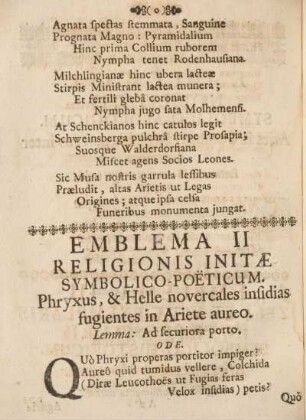 Agnata spectas stemmata, Sanguine
Prognata Magno: Pyramidalium
Hinc prima Collium ruborem
Nympha tenet Rodenhausiana.
Milchlingianæ hinc ubera lacteæ
Stirpis Ministrant lactea munera;
Et fertili glebâ coronat
Nympha jugo sata Molhemensi.
At Schenckianos hinc catulos legit
Schweinsberga pulchrâ stirpe Prosapia;
Suosque Walderdorfiana
Miscet agens Socios Leones.
Sic Musa nostris garrula lessibus
Præludit, altas Arietis ut Legas
Origines; atque ipsa celsa
Funeribus monumenta jungat.
EMBLEMA II
RELIGIONIS INITÆ
SYMBOLICO-POËTICUM.
Phryxus, & Helle novercales insidias
fugientes in Ariete aureo.
Lemma: Ad securiora porto.
ODE.
QUò Phryxi properas portitor impiger?
Aureô quid tumidus vellere, Colchida
(Diræ Leucothoës ut Fugias feras
Velox insidias) petis?
Quô